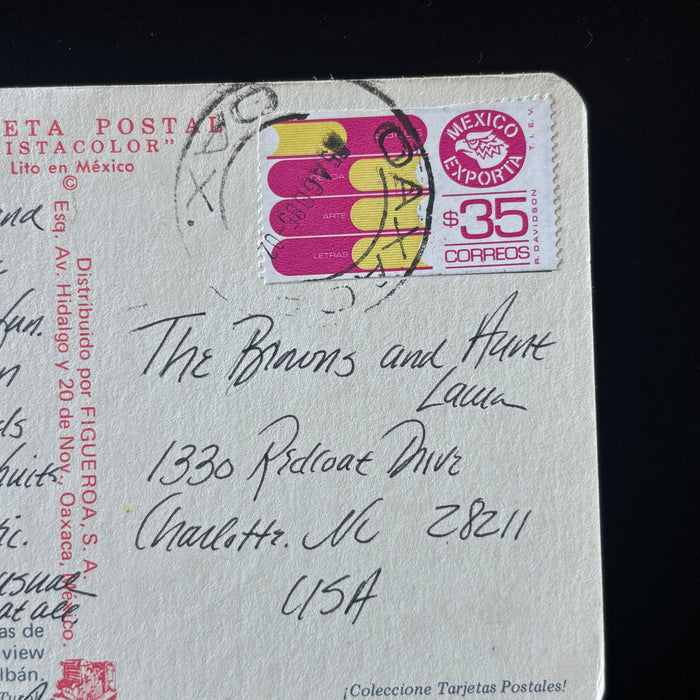 ETA POSTAL
ISTACOLOR"
Lito en México
©
Distribuido por FIGUEROA, S. A.
Esq. Av. Hidalgo y 20 de Nov., Oaxaca, México.
OAXACA
OAX.
CIENCIA
ARTE
LETRAS
MEXICO
EXPORTA
T.I.E.V.
$35
CORREOS
R. DAVIDSON
The Browns and Aunt
Laura
1330 Redcoat Drive
Charlotte. NC 28211
USA
fun.
usual
at all.
as de
view
lbán.
¡Coleccione Tarjetas Postales!